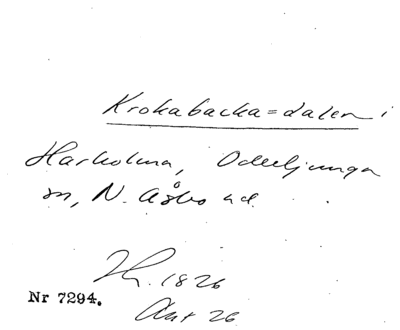 Krokabacka=dalen i
Harholma, Oderljunga
sn, N. Åsbo hd.
1826
Nr 7294.
Akt 26